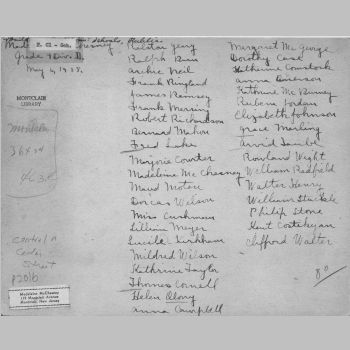 H. Cl - Sch. Schools, Public
Grade 4 Div. D.
May 4, 1938.
MONTCLAIR
LIBRARY
Montclair
36x24
central
Center
Street
P201b
Madeleine McChesney
Montclair, New Jersey
Ralston Yeary
Ralph
Archie Neil
Frank Ringland
James Ramsey
Frank Mersing
Robert Richardson
Bernard Mahon
Fred Lake
Marjorie Courter
Madeleine Mc Chesney
Maud Moten
Dorcas Wilson
Miss Cushman
Lillian Meyer
Lucile Kirkham
Mildred Wilson
Kathrine Taylor
Thomas Cornell
Helen
Anna Campbell
Margaret Mc George
Dorothy Case
Katherine Comstock
Anna
Kathrine Mc Burney
Ruben Jordan
Elizabeth Johnson
Grace Merling
Arvid
Rowland Wight
William Redfield
Walter Henry
William
Philip Stone
Kent
Clifford Walter
80